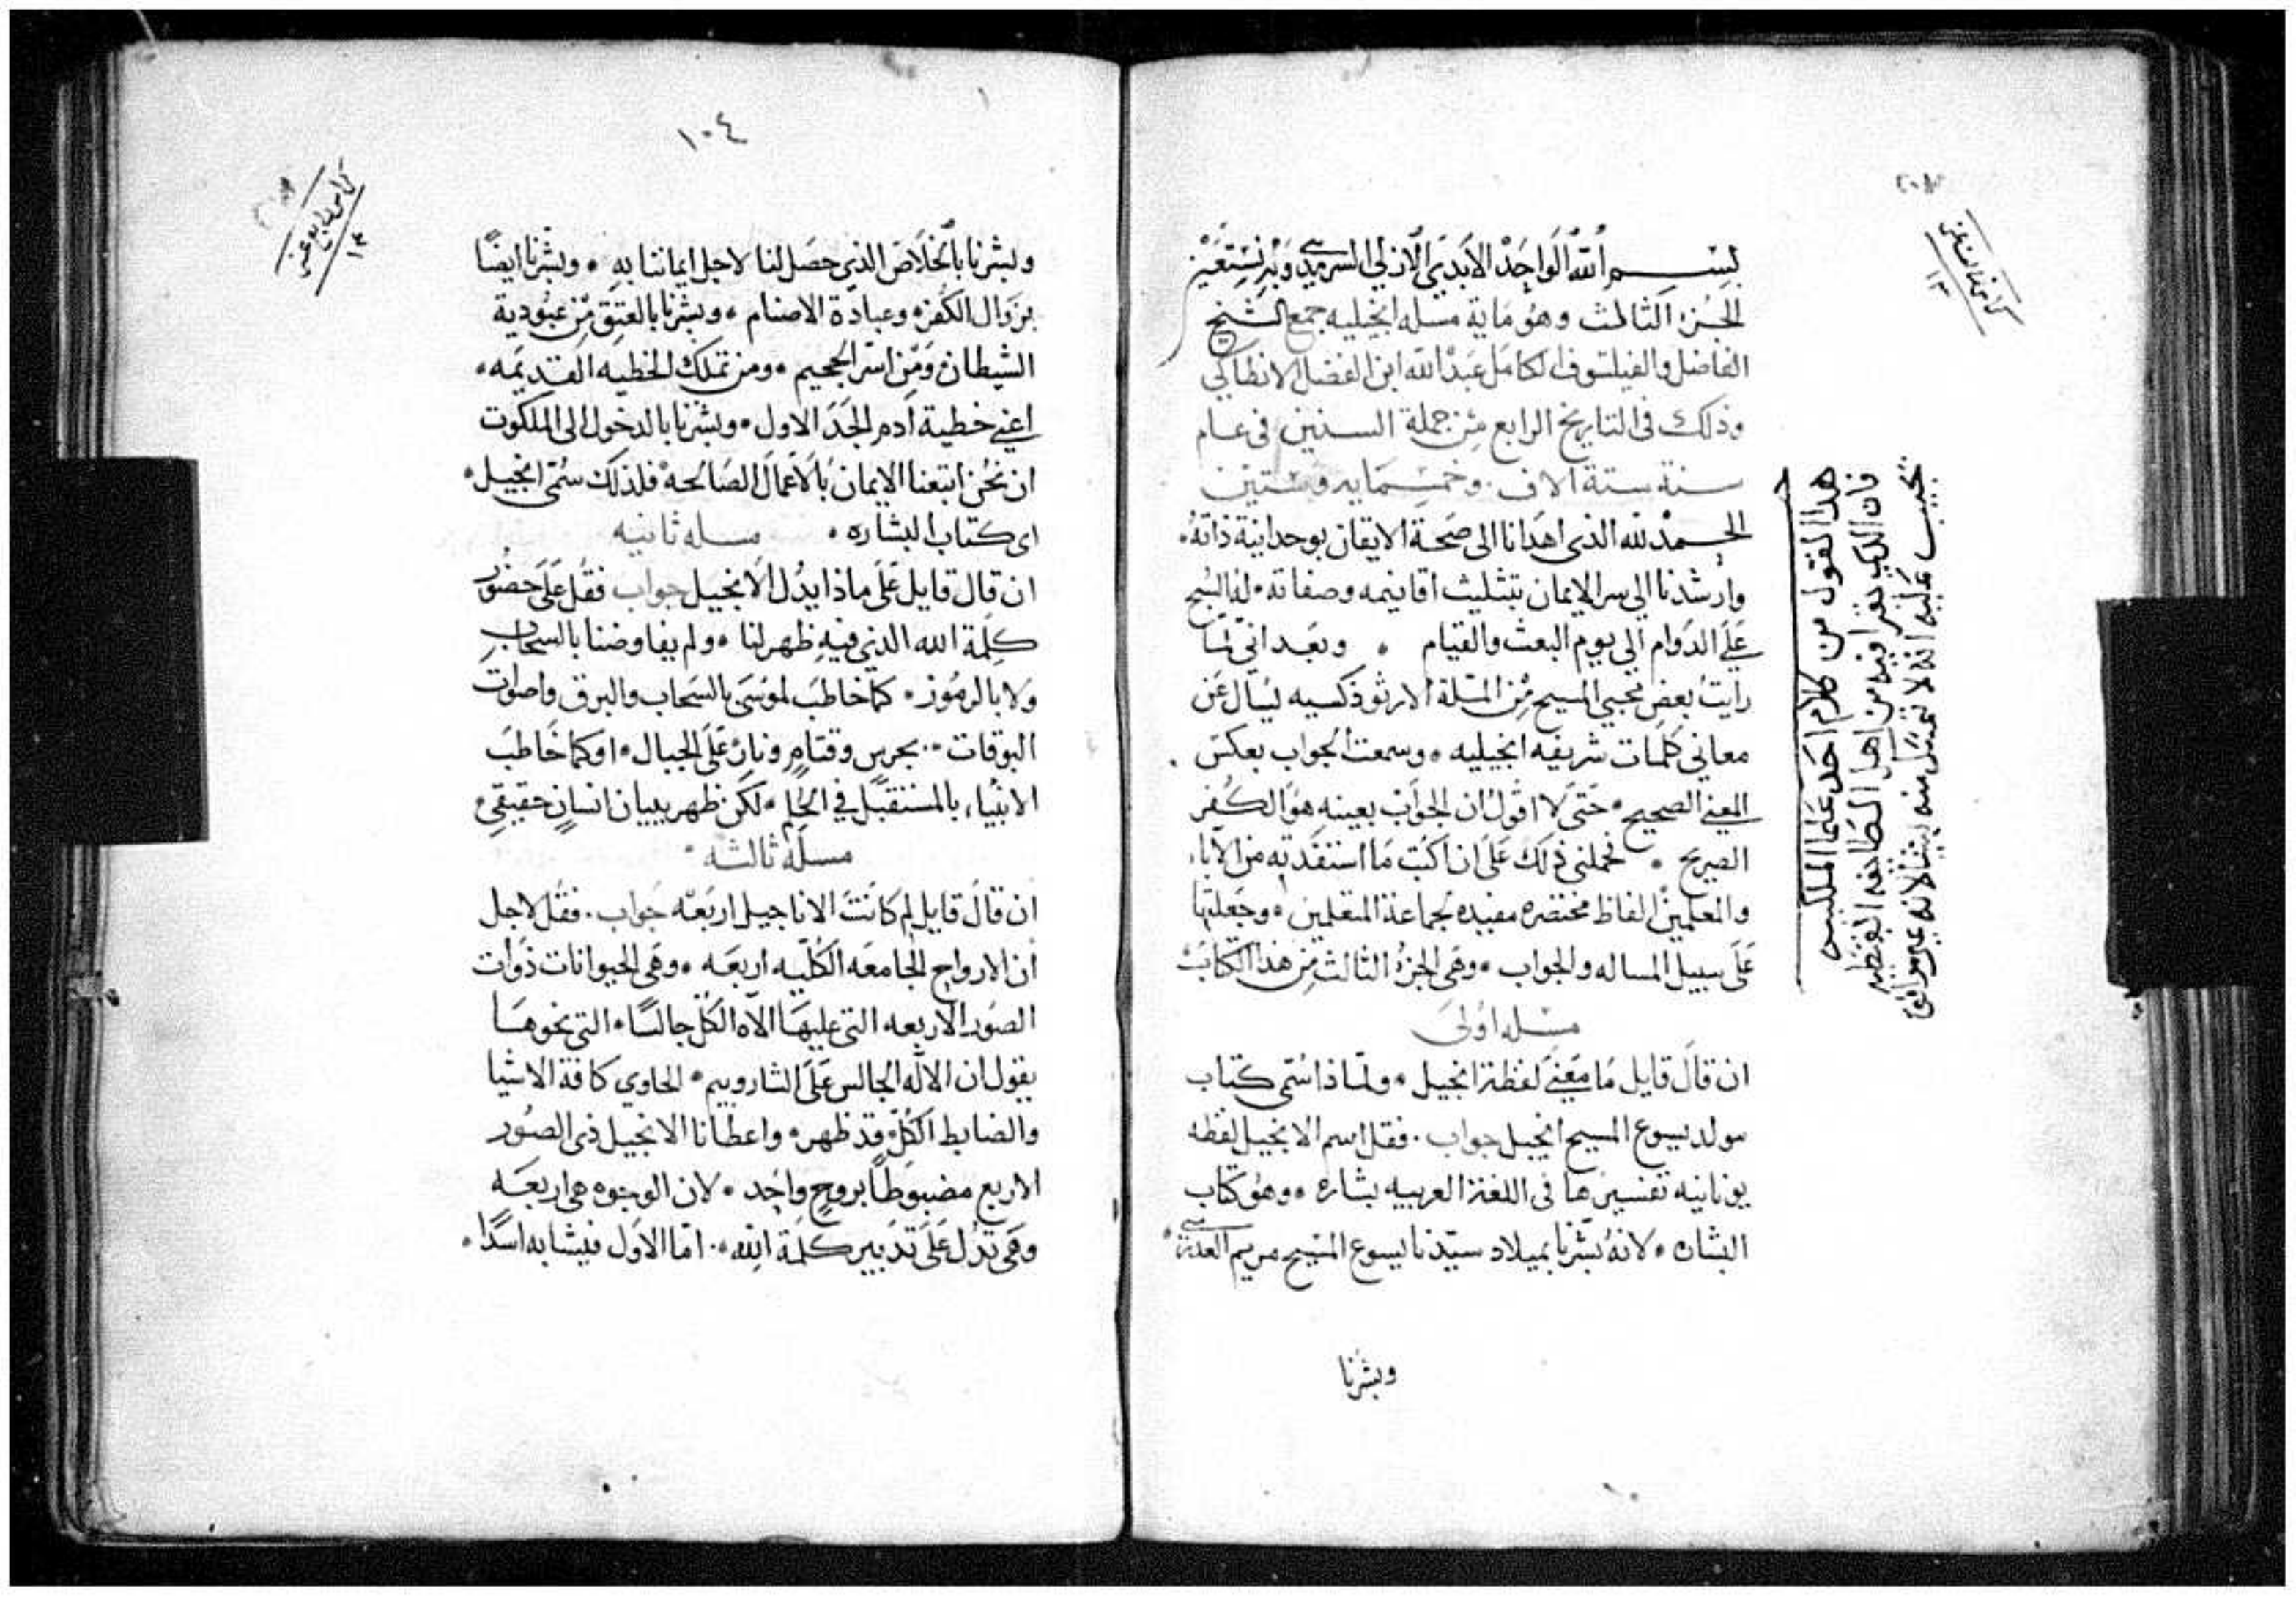 بسم الله الواحد الابدي الازلي السرمدي وبه نستعين
الجزء الثالث وهو ماية مسله انجيليه جمع الشيخ
الفاضل والفيلسوف الكامل عبد الله ابن الفضل الانطاكي
وذلك فى التاريخ الرابع من جملة السنين فى عام
سنة ستة الاف وخمسمايه وستين
الحمد لله الذى اهدانا الى صحة الايقان بوحدانية ذاته
وارشدنا الي سر الايمان بتثليث اقانيمه وصفاته له السبح
علي الدوام الى يوم البعث والقيام وبعد انى لما
رايت بعض محبي المسيح من الملة الارثوذكسيه يسال عن
معاني كلمات شريفه انجيليه وسمعت الجواب بعكس
المعني الصحيح حتى لا اقول ان الجواب بعينه هو الكفر
الصريح فحملني ذلك على ان اكتب ما استفدته من الآباء
والمعلمين الفاظ مختصره مفيده لجماعة المتعلمين وجعلتها
على سبيل المساله والجواب وهى الجزء الثالث من هذا الكتاب
مسله اولى
ان قال قايل ما معني لفظة انجيل ولماذا سمى كتاب
مولد يسوع المسيح انجيل جواب فقل اسم الانجيل لفظه
يونانيه تفسيرها فى اللغة العربيه بشاره وهو كتاب
البشاره لانه بشرنا بميلاد سيدنا يسوع المسيح من مريم العذرى
وبشرنا
هذا القول من كلام احد علما الملكيه
فان الذي يقرا فيه من اهل الطايفه القبطيه
يجب عليه انه لا يقبل منه شيا لانه غير موافق
١٠٤
كراس رابع عشر
١٤
وبشرنا بالخلاص الذي حصل لنا لاجل ايماننا به وبشرنا ايضًا
بزوال الكفر وعبادة الاصنام وبشرنا بالعتق من عبودية
الشيطان ومن اسر الجحيم ومن تملك الخطيه القديمه
اعني خطية ادم الجد الاول وبشرنا بالدخول الى الملكوت
ان نحن اتبعنا الايمان بالاعمال الصالحه فلذلك سمى انجيل
اى كتاب البشاره مسله ثانيه
ان قال قايل على ماذا يدل الانجيل جواب فقل على حضور
كلمة الله الذي فيه ظهر لنا ولم يفاوضنا بالسحاب
ولا بالرموز كما خاطب لموسى بالسحاب والبرق واصوات
البوقات بجرس وقتام ونار على الجبال او كما خاطب
الانبياء بالمستقبل في الحلم لكن ظهر ببيان انسان حقيقي
مسله ثالثه
ان قال قايل لم كانت الاناجيل اربعه جواب فقل لاجل
ان الارواح الجامعه الكليه اربعه وهى الحيوانات ذوات
الصور الاربعه التى عليها الاه الكل جالسًا التى نحوها
يقول ان الاله الجالس على الشاروبيم الحاوي كافة الاشيا
والضابط الكل قد ظهر واعطانا الانجيل ذى الصور
الاربع مضبوطًا بروح واحد لان الوجوه هى اربعه
وهى تدل على تدبير كلمة الله اما الاول فيشابه اسدًا